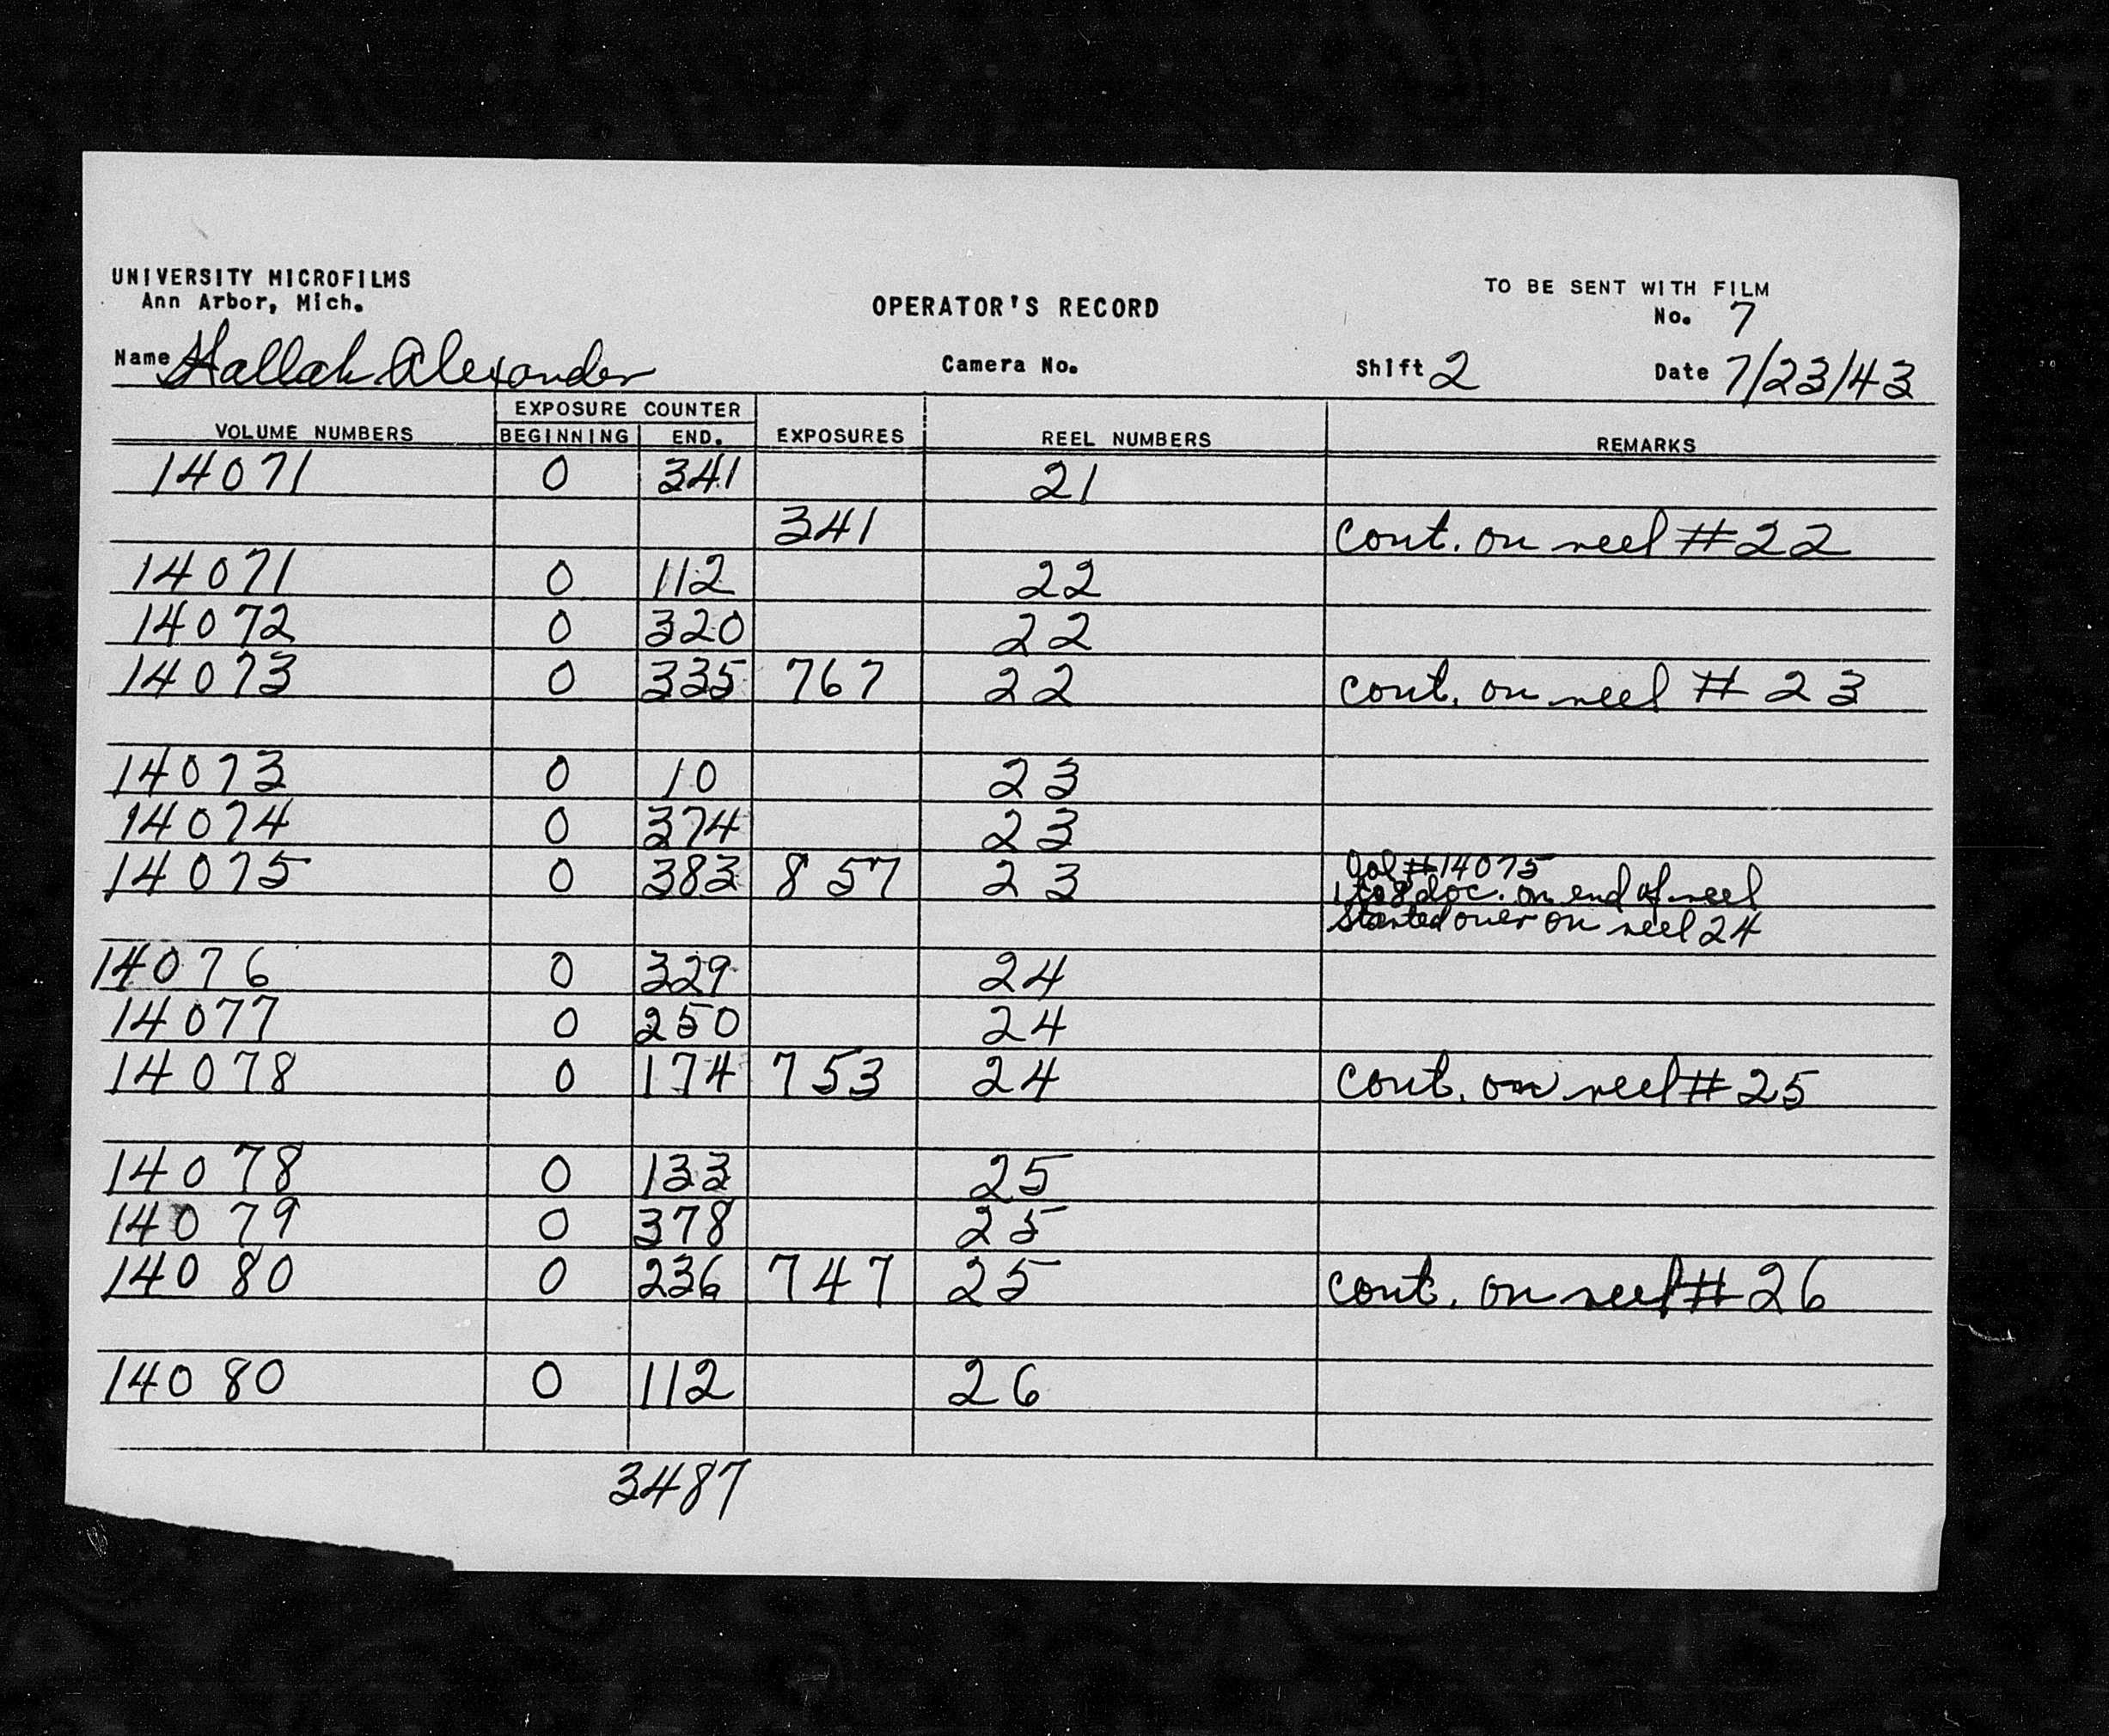 UNIVERSITY MICROFILMS
Ann Arbor, Mich.
TO BE SENT WITH FILM
OPERATOR'S RECORD
No. 7
Name Hallah Alexander
Camera No.
Shift 2
Date 7/23/43
EXPOSURE COUNTER
VOLUME NUMBERS BEGINNING END. EXPOSURES REEL NUMBERS REMARKS
14071 0 341 21
341 cont. on reel #22
14071 0 112 22
14072 0 320 22
14073 0 335 767 22 cont. on reel #23
14073 0 10 23
14074 0 374 23
14075 0 383 857 23 Vol #14075
1 to 8 doc. on end of reel
started over on reel 24
14076 0 329 24
14077 0 250 24
14078 0 174 753 24 cont. on reel #25
14078 0 133 25
14079 0 378 25
14080 0 236 747 25 cont. on reel #26
14080 0 112 26
3487